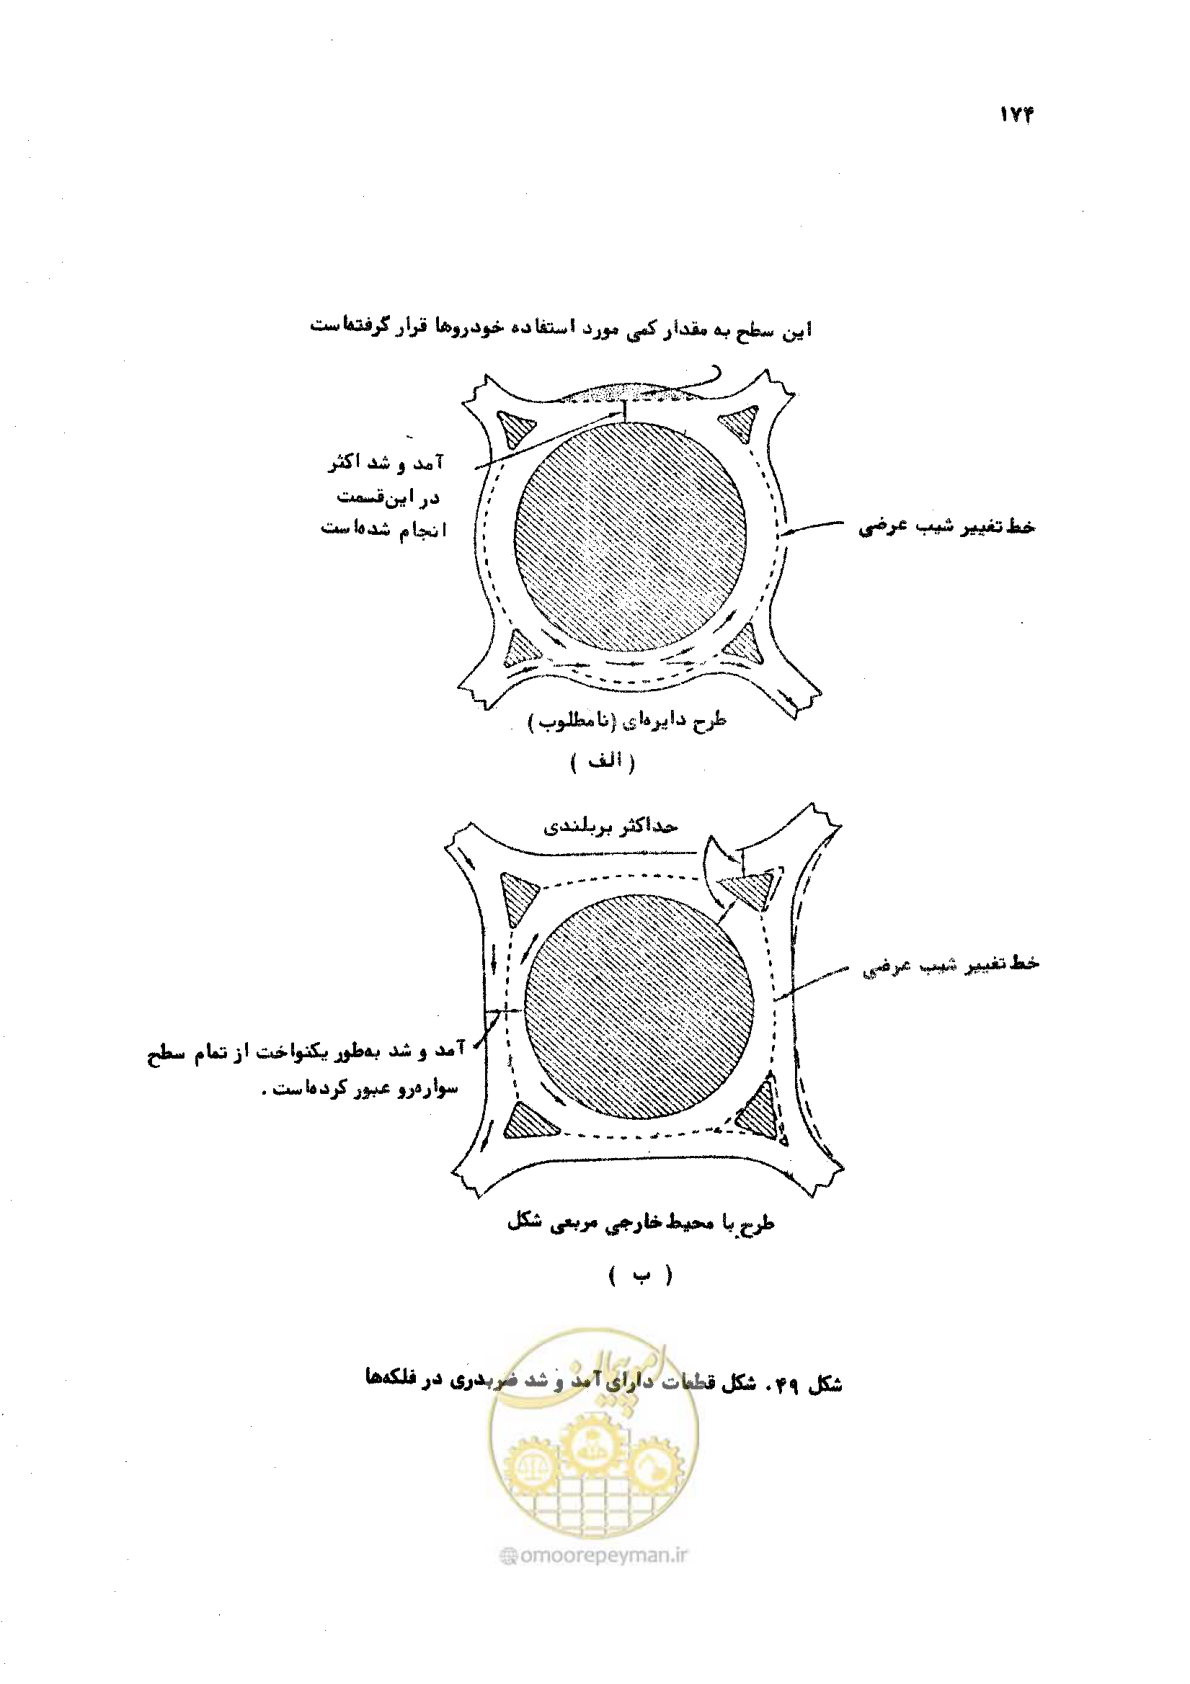 ۱۷۴
این سطح به مقدار کمی مورد استفاده خودروها قرار گرفته‌است
آمد و شد اکثر
در این‌قسمت
انجام شده‌است
خط تغییر شیب عرضی
طرح دایره‌ای (نامطلوب)
( الف )
حداکثر بربلندی
خط تغییر شیب عرضی
آمد و شد به‌طور یکنواخت از تمام سطح
سواره‌رو عبور کرده‌است .
طرح با محیط خارجی مربعی شکل
( ب )
شکل ۴۹ . شکل قطعات دارای آمد و شد ضربدری در فلکه‌ها
امور پیمان
@omoorepeyman.ir